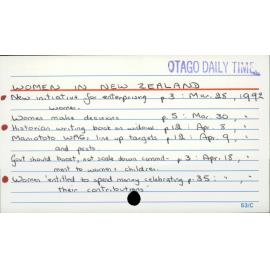 OTAGO DAILY TIMES
WOMEN IN NEW ZEALAND
New initiative for enterprising p.3 : Mar. 28, 1992
women.
Women make decisions p.5 : Mar. 30, "
Historian writing book on widows p.12 : Apr. 8, "
Maniototo WAGs line up targets p.12 : Apr. 9, "
and pests.
Govt should boost, not scale down commit- p.3 : Apr. 18, "
ment to women & children.
Women "entitled to spend money celebrating p.35 : " , "
their contributions"
53/C